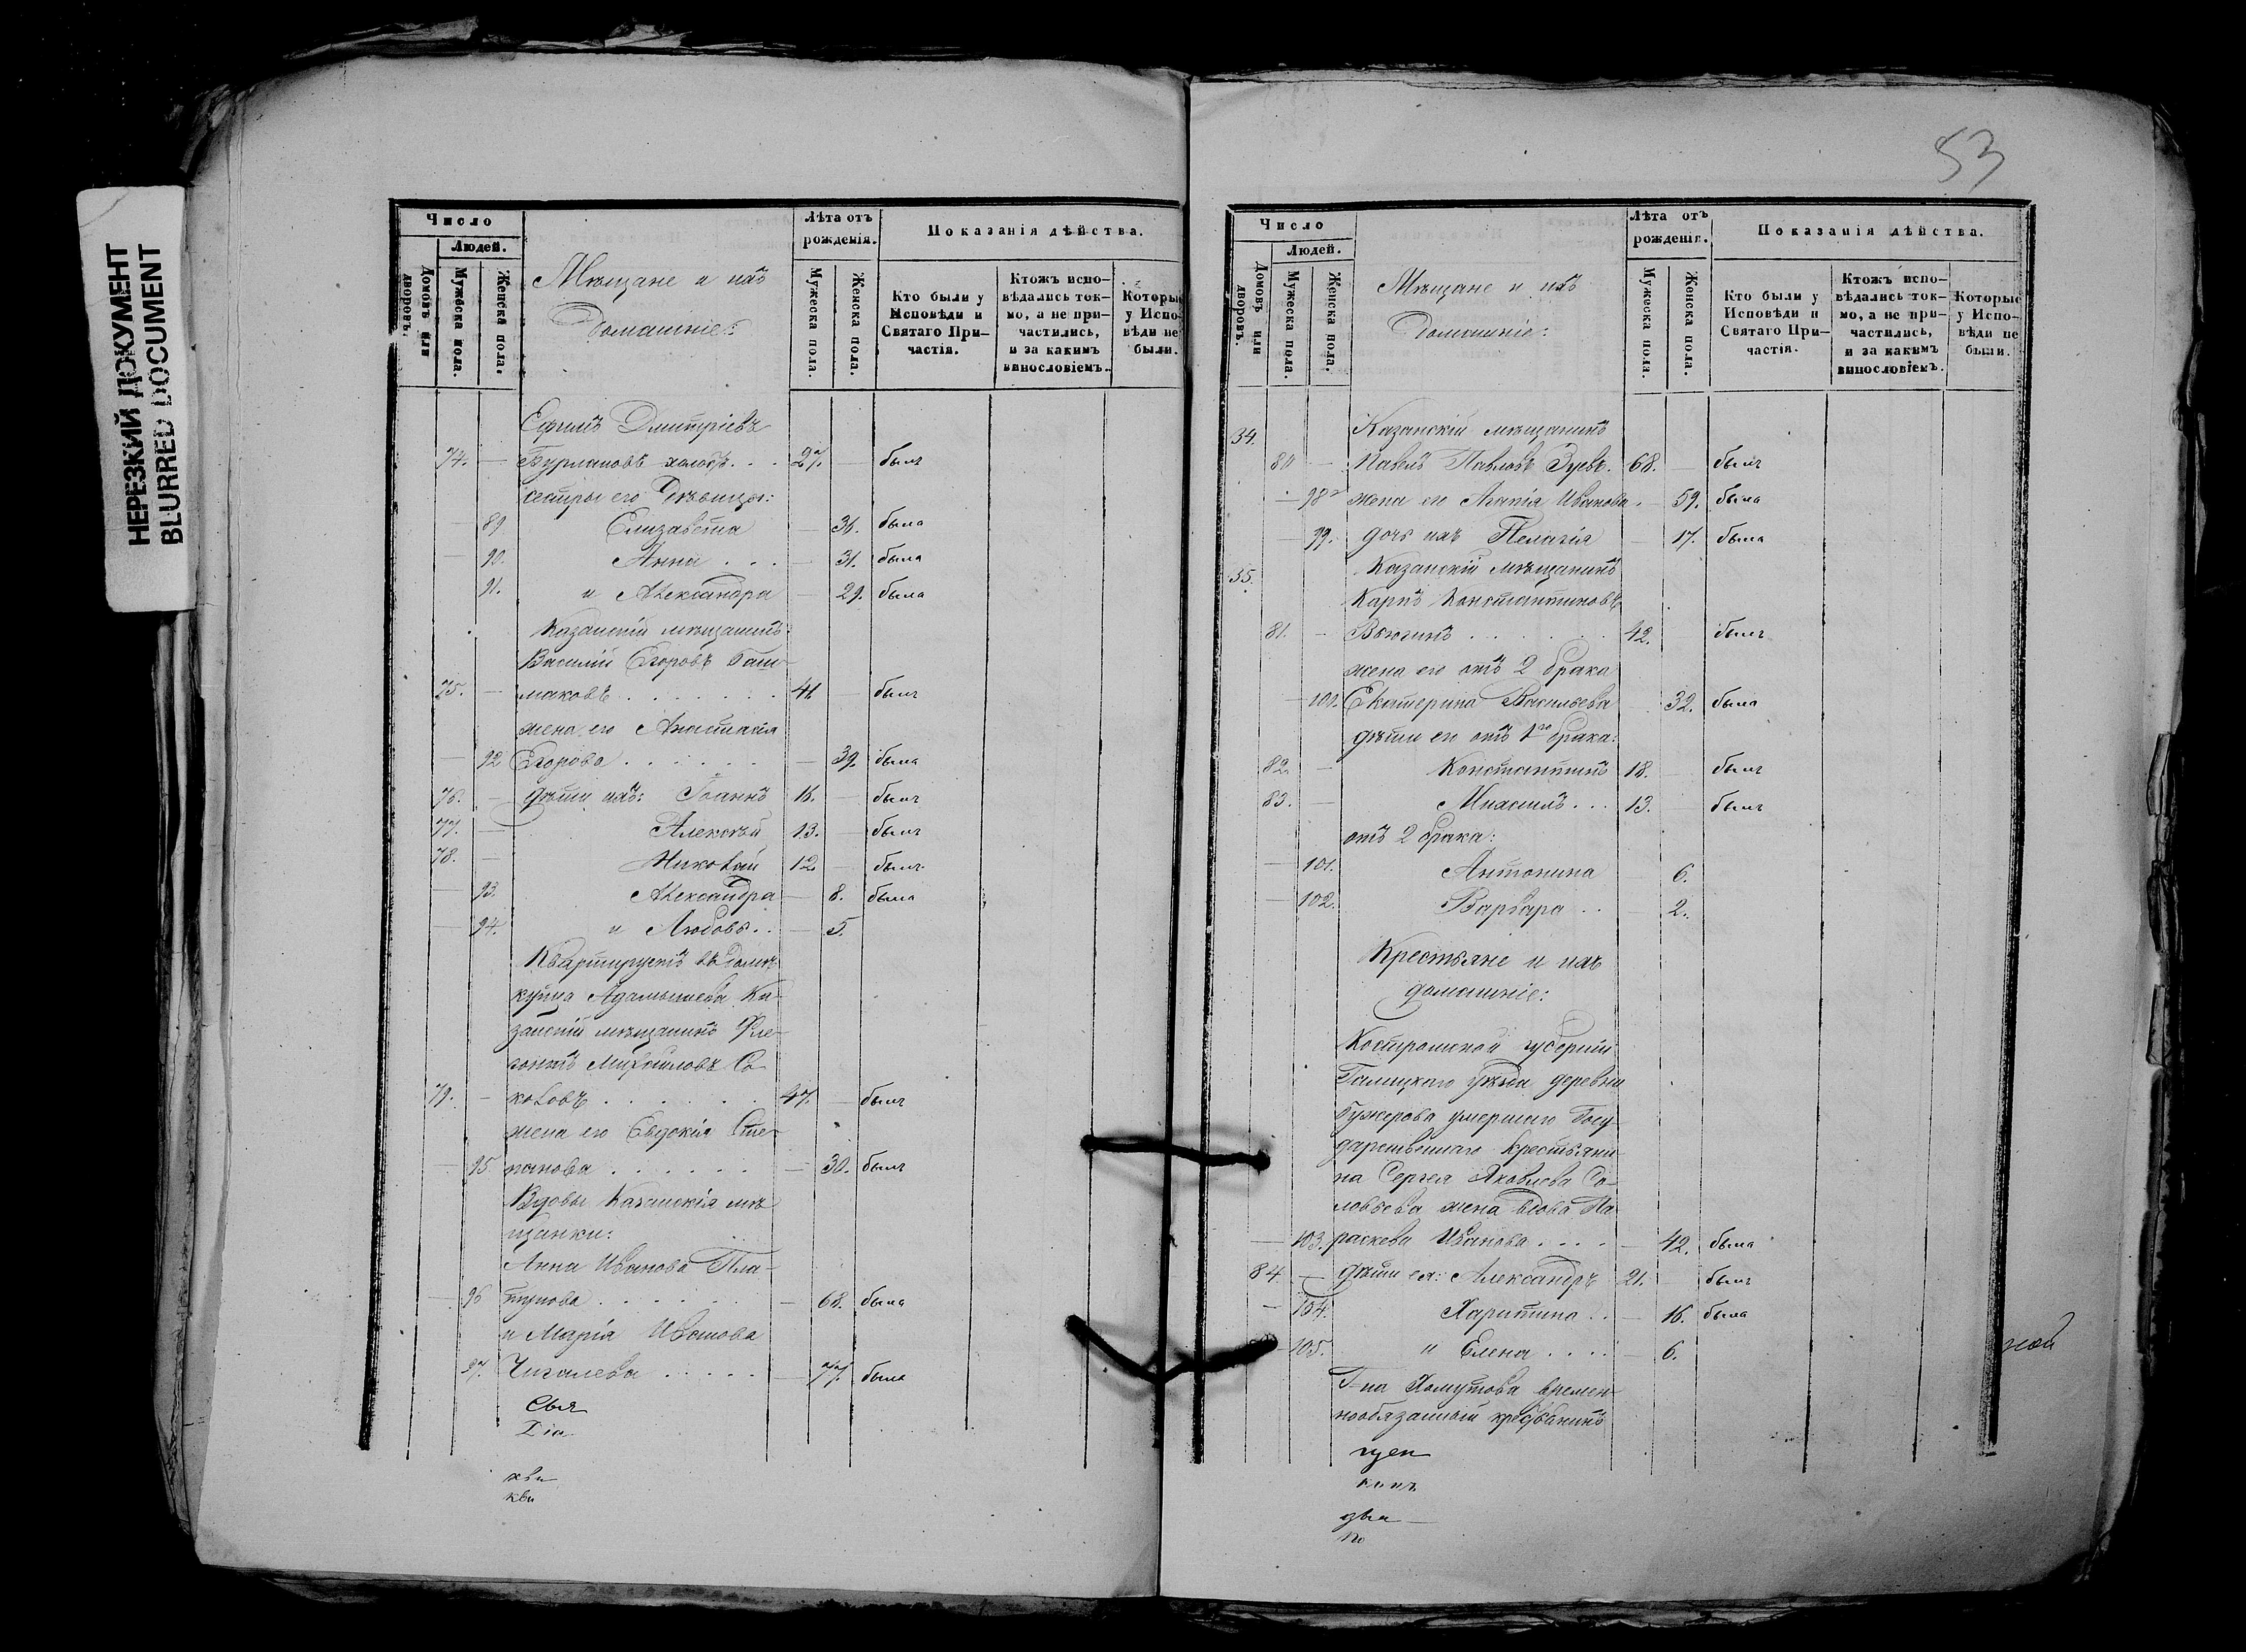 НЕРЕЗКИЙ ДОКУМЕНТ
BLURRED DOCUMENT
Число
Людей.
Домовъ или дворовъ.
Мужеска пола.
Женска пола.
Мѣщане и ихъ
домашніе:
Лѣта отъ рожденія.
Мужеска пола.
Женска пола.
Показанія дѣйства.
Кто были у Исповѣди и Святаго Причастія.
Ктожъ исповѣдались токмо, а не причастились, и за какимъ винословіемъ.
Которые у Исповѣди не были.
Ефимъ Дмитріевъ
74. — Бурлаковъ холостъ . . . 27. — былъ
сестры его дѣвицы:
89 Елизавета — 36. была
— 90. Анна . . . — 31. была
91. и Александра — 29. была
Казанскій мѣщанинъ
Василій Егоровъ Баш-
75. — маковъ . . . . . . . 41. — былъ
жена его Анастасія
— 92 Егорова . . . . . . — 39. была
76. — дѣти ихъ: Іоаннъ 16. — былъ
77. — Алексѣй 13. — былъ
78. — Николай 12 — былъ
— 93. Александра — 8. была
— 94. и Любовь . . — 5.
Квартируетъ въ домѣ
купца Адамычева Ка-
занскій мѣщанинъ Фле-
гонтъ Михайловъ Со-
79. — коловъ . . . . . . . 47. — былъ
жена его Евдокія Сте-
— 95 панова . . . . . . — 30. былъ
Вдовы Казанскія мѣ-
щанки:
Анна Иванова Пла-
— 96 тунова . . . . . . — 68. была
и Марія Иванова
97. Чигалева . . . . . — 77. была
Діа
кви
53
Число
Людей.
Домовъ или дворовъ.
Мужеска пола.
Женска пола.
Мѣщане и ихъ
домашніе:
Лѣта отъ рожденія.
Мужеска пола.
Женска пола.
Показанія дѣйства.
Кто были у Исповѣди и Святаго Причастія.
Ктожъ исповѣдались токмо, а не причастились, и за какимъ винословіемъ.
Которые у Исповѣди не были.
34. Казанскій мѣщанинъ
80 — Павелъ Павловъ Зуевъ. 68. — былъ
— 98 жена его Агапія Иванова . — 59. была
— 99. дочь ихъ Пелагія — 17. была
35. Казанскій мѣщанинъ
Карпъ Константиновъ
81. — Вьюгинъ . . . . . . 42. былъ
жена его отъ 2 брака
— 101. Екатерина Васильева — 32. была
дѣти его отъ 1го брака:
82. — Константинъ 18. — былъ
83. — Мнасилъ . . . 13. — былъ
отъ 2 брака:
— 101. Антонина — 6.
— 102. Варвара . . — 2.
Крестьяне и ихъ
домашніе:
Костромской губерніи
Галицкаго уѣзда деревни
Бужерова умершаго Госу-
дарственнаго Крестьяни-
на Сергея Яковлева Со-
ловьева жена вдова Па-
— 103. раскева Иванова . . . . — 42. была
84 — дѣти ея: Александръ 21. — былъ
— 104. Харитина . . — 16. была
— 105. и Елена . . . . — 6.
Г-на Хомутова времен-
нообязанный крестьянинъ
два —
по